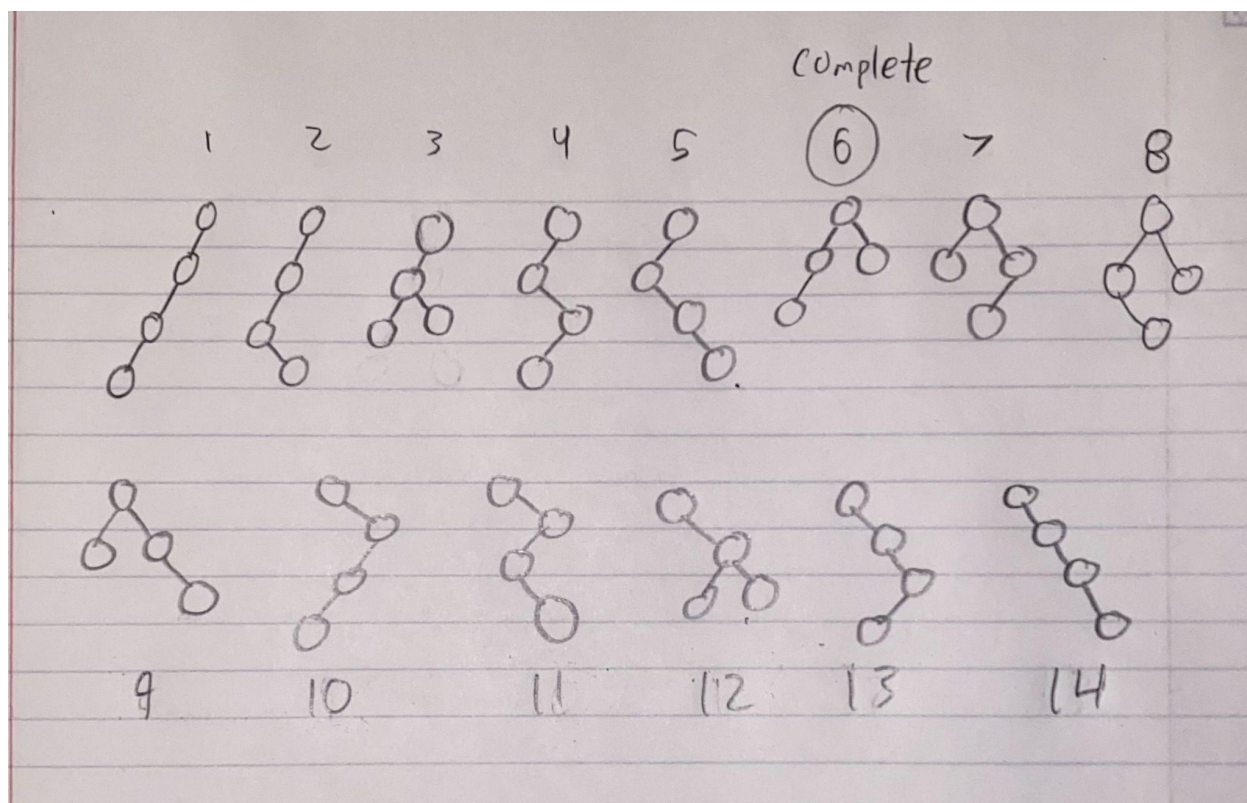 complete
1 2 3 4 5 6 7 8
9 10 11 12 13 14